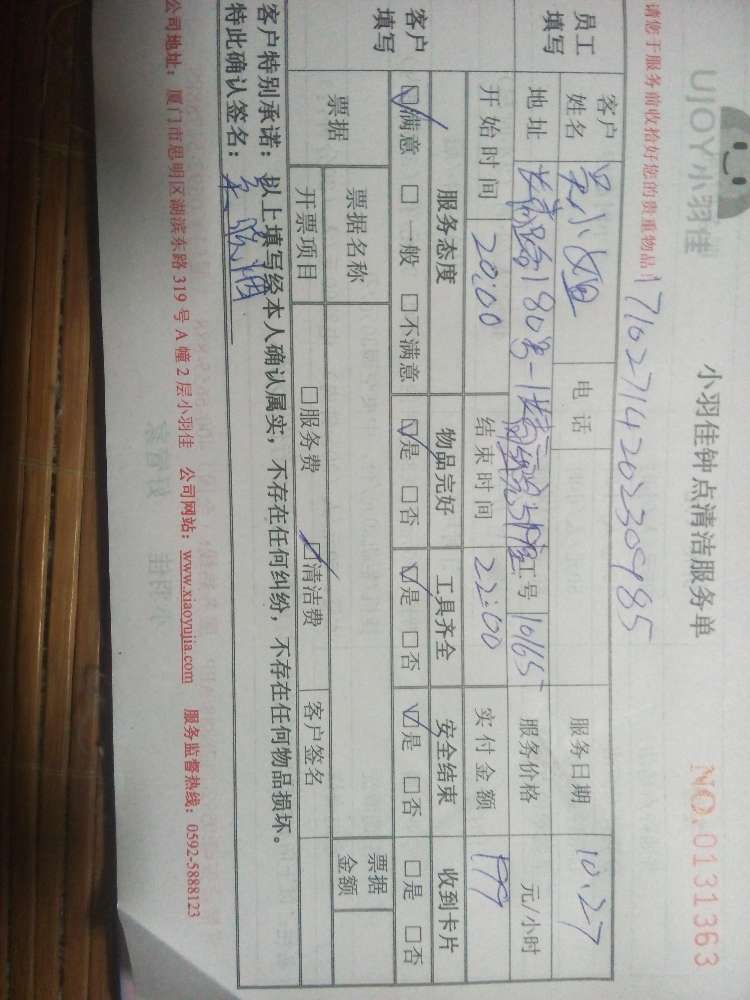 UJOY小羽佳
小羽佳钟点清洁服务单
NO.0131363
请您于服务前收拾好您的贵重物品!
17102714202305985
员工填写
客户姓名
吴小姐
电话
服务日期
10.27
地址
180号-1
工号
10165
服务价格
元/小时
开始时间
20:00
结束时间
22:00
实付金额
199
客户填写
服务态度
物品完好
工具齐全
安全结束
收到卡片
☑满意 □一般 □不满意
☑是 □否
☑是 □否
☑是 □否
□是 □否
票据
票据名称
票据金额
开票项目
□服务费 ☑清洁费
客户签名
客户特别承诺:以上填写经本人确认属实,不存在任何纠纷,不存在任何物品损坏。
特此确认签名:
公司地址:厦门市思明区湖滨东路319号A幢2层小羽佳 公司网站:www.xiaoyujia.com 服务监督热线:0592-5888123